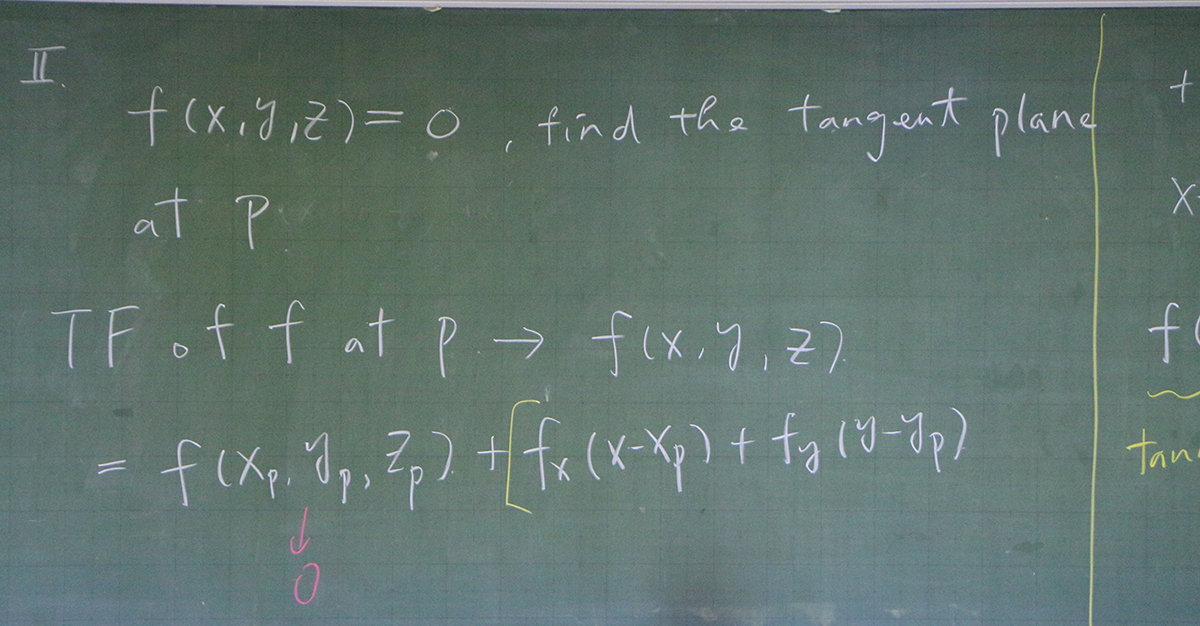 II.
f(x,y,z)=0, find the tangent plane
at p.
TF of f at p. → f(x,y,z).
= f(xp, yp, zp). + [fx (x-xp) + fy (y-yp)
↓
0
t
x-
f(
tan